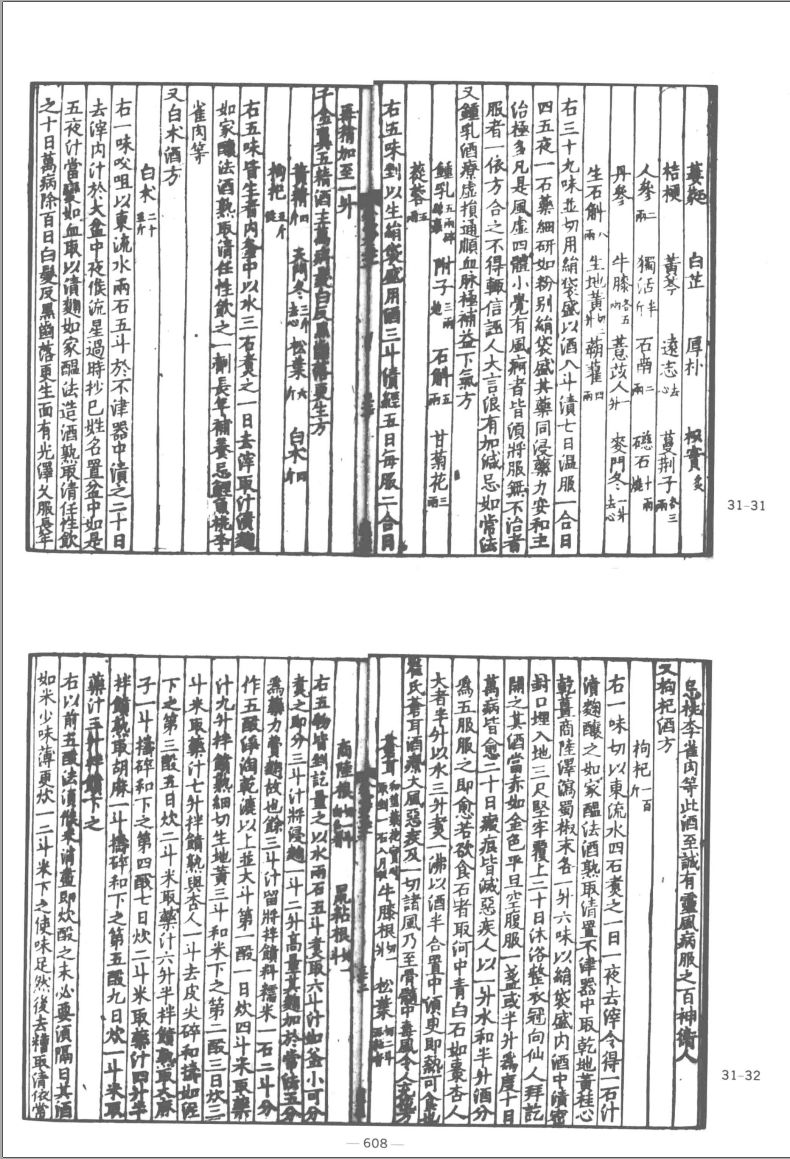 蔓荊 白芷 厚朴 枳實炙
桔梗 黃芩 遠志去心 蔓荊子各三兩
人參二兩 獨活半斤 石南二兩 磁石十兩燒
丹參 牛膝各五兩 薏苡人一升 麥門冬一升去心
生石斛八兩 生地黃切二升 萠藋四兩
右三十九味並切用絹袋盛以酒八斗漬七日温服一合日
四五夜一石藥細研如粉别絹袋盛共藥同浸藥力安和主
治極多凡是風虛四體小覺有風痾者皆須將服無不治者
服者一依方合之不得輒信誣人大言浪有加減忌如常法
又鍾乳酒療虛損通順血脉極補益下氣方
鍾乳五兩 附子二兩炮 石斛五兩 甘菊花三兩
蓯蓉五兩
右五味剉以生絹袋盛用酒三斗漬經五日每服二合日
再稍加至一升
千金翼五精酒主萬病髮白反黑齒落更生方
黃精四斤 天門冬三斤去心 松葉六斤 白朮四斤
枸杞五斤
右五味皆生者內釜中以水三石煮之一日去滓取汁漬麴
如家釀法酒熟取清任性飲之一劑長年補養忌鯉魚桃李
雀肉等
又白朮酒方
白朮二十五斤
右一味㕮咀以東流水兩石五斗於不津器中漬之二十日
去滓內汁於大盆中夜候流星過時抄己姓名置盆中如是
五夜汁當變如血取以漬麴如家醞法造酒熟取清任性飲
之十日萬病除百日白髮反黑齒落更生面有光澤久服長年
31-31
忌桃李雀肉等此酒至誠有靈風病服之百神衛人
又枸杞酒方
枸杞一百斤
右一味切以東流水四石煮之一日一夜去滓令得一石汁
漬麴釀之如家醞法酒熟取清置不津器中取乾地黃桂心
乾薑商陸澤瀉蜀椒末各一升六味以絹袋盛內酒中漬密
封口埋入地三尺堅牢覆上二十日沐浴整衣冠向仙人拜訖
開之其酒當赤如金色平旦空腹服一盞或半升為度十日
萬病皆愈二十日瘢痕皆減惡疾人以一升水和半升酒分
為五服服之即愈若欲食石者取河中青白石如棗杏人
大者半升以水三升煮一沸以酒半合置中須更即熱可食也
崔氏蒼耳酒療大風惡疾及一切諸風乃至骨髓中毒風令人
牛膝根切 松葉切二斗
商陸根 鼠粘根切一斗
右五物皆剉訖量之以水兩石五斗煮取六斗汁如釜小可分
煮之即分三斗汁將浸麴一斗二升高量其麴加於常法五分
為藥力費麴故也餘三斗汁留將拌饋料糯米一石二斗分
作五酘淨淘乾漉以上並大斗第一酘一日炊四斗米取藥
汁九升拌饋熟細切生地黃三斗和米下之第二酘三日炊三
斗米取藥汁七升拌饋熟與杏人一斗去皮尖碎和擣如涅
下之第三酘五日炊二斗米取藥汁六升半拌饋熟取大麻
子一斗擣碎和下之第四酘七日炊二斗米取藥汁四升半
拌饋熟取胡麻一斗擣碎和下之第五酘九日炊一斗米取
藥汁三升拌饋下之
右以前五酘法漬候米消盡即炊酘之未必要須隔日其酒
如米少味薄更炊一二斗米下之使味足然後去糟取清依常
31-32
— 608 —